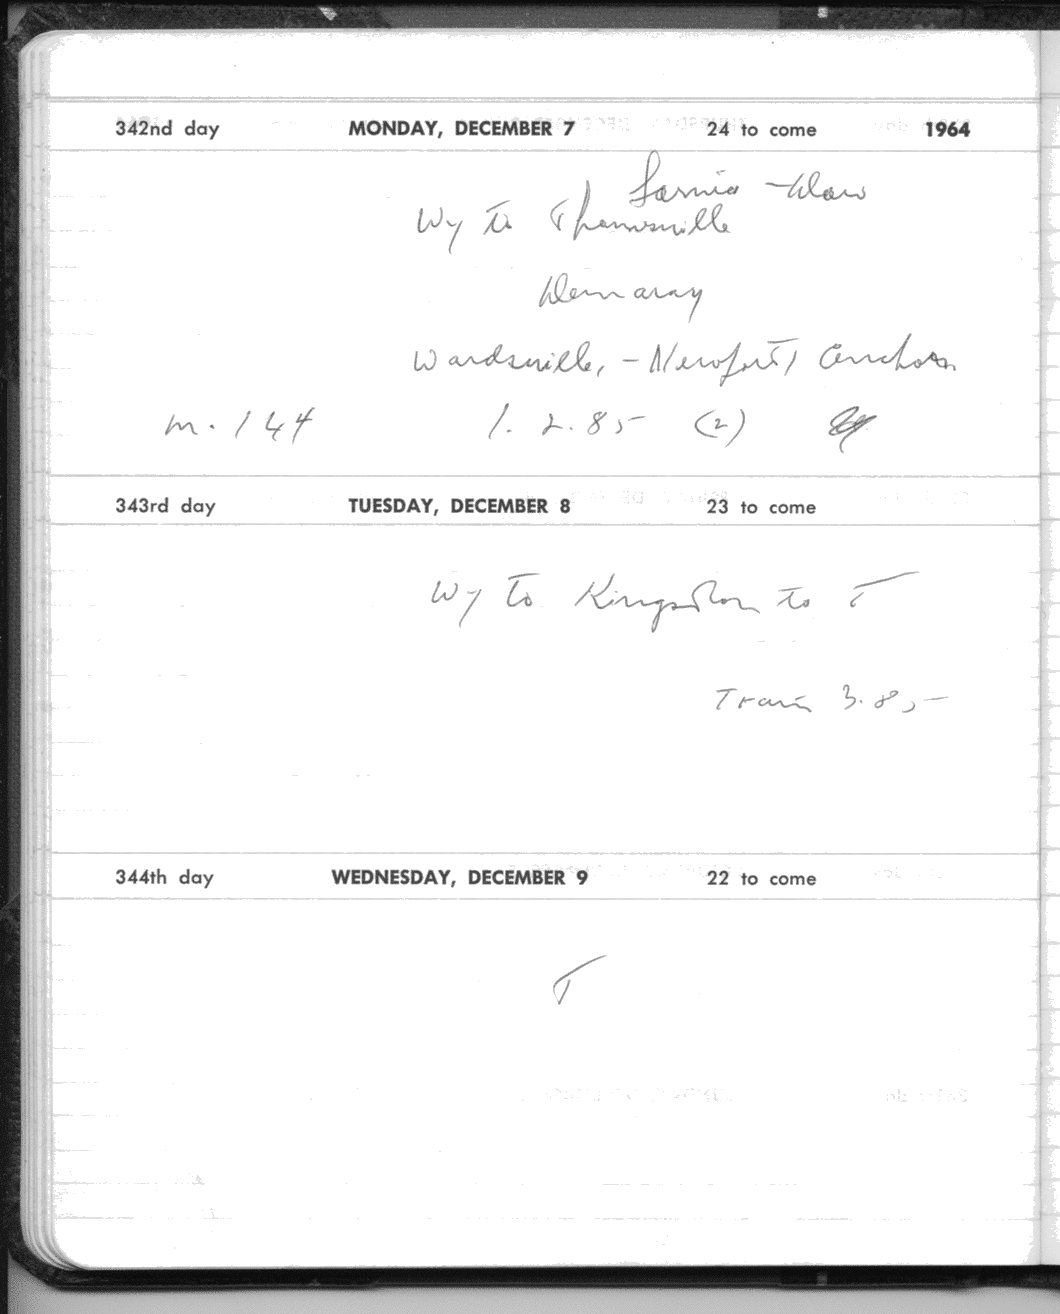 342nd day MONDAY, DECEMBER 7 24 to come 1964
Sarnia -
Wy to Thamesville
Demaray
Wardsville, - Newport,
m. 144 1. 2.85 (2)
343rd day TUESDAY, DECEMBER 8 23 to come
Wy to Kingston to T
Train 3.85-
344th day WEDNESDAY, DECEMBER 9 22 to come
T